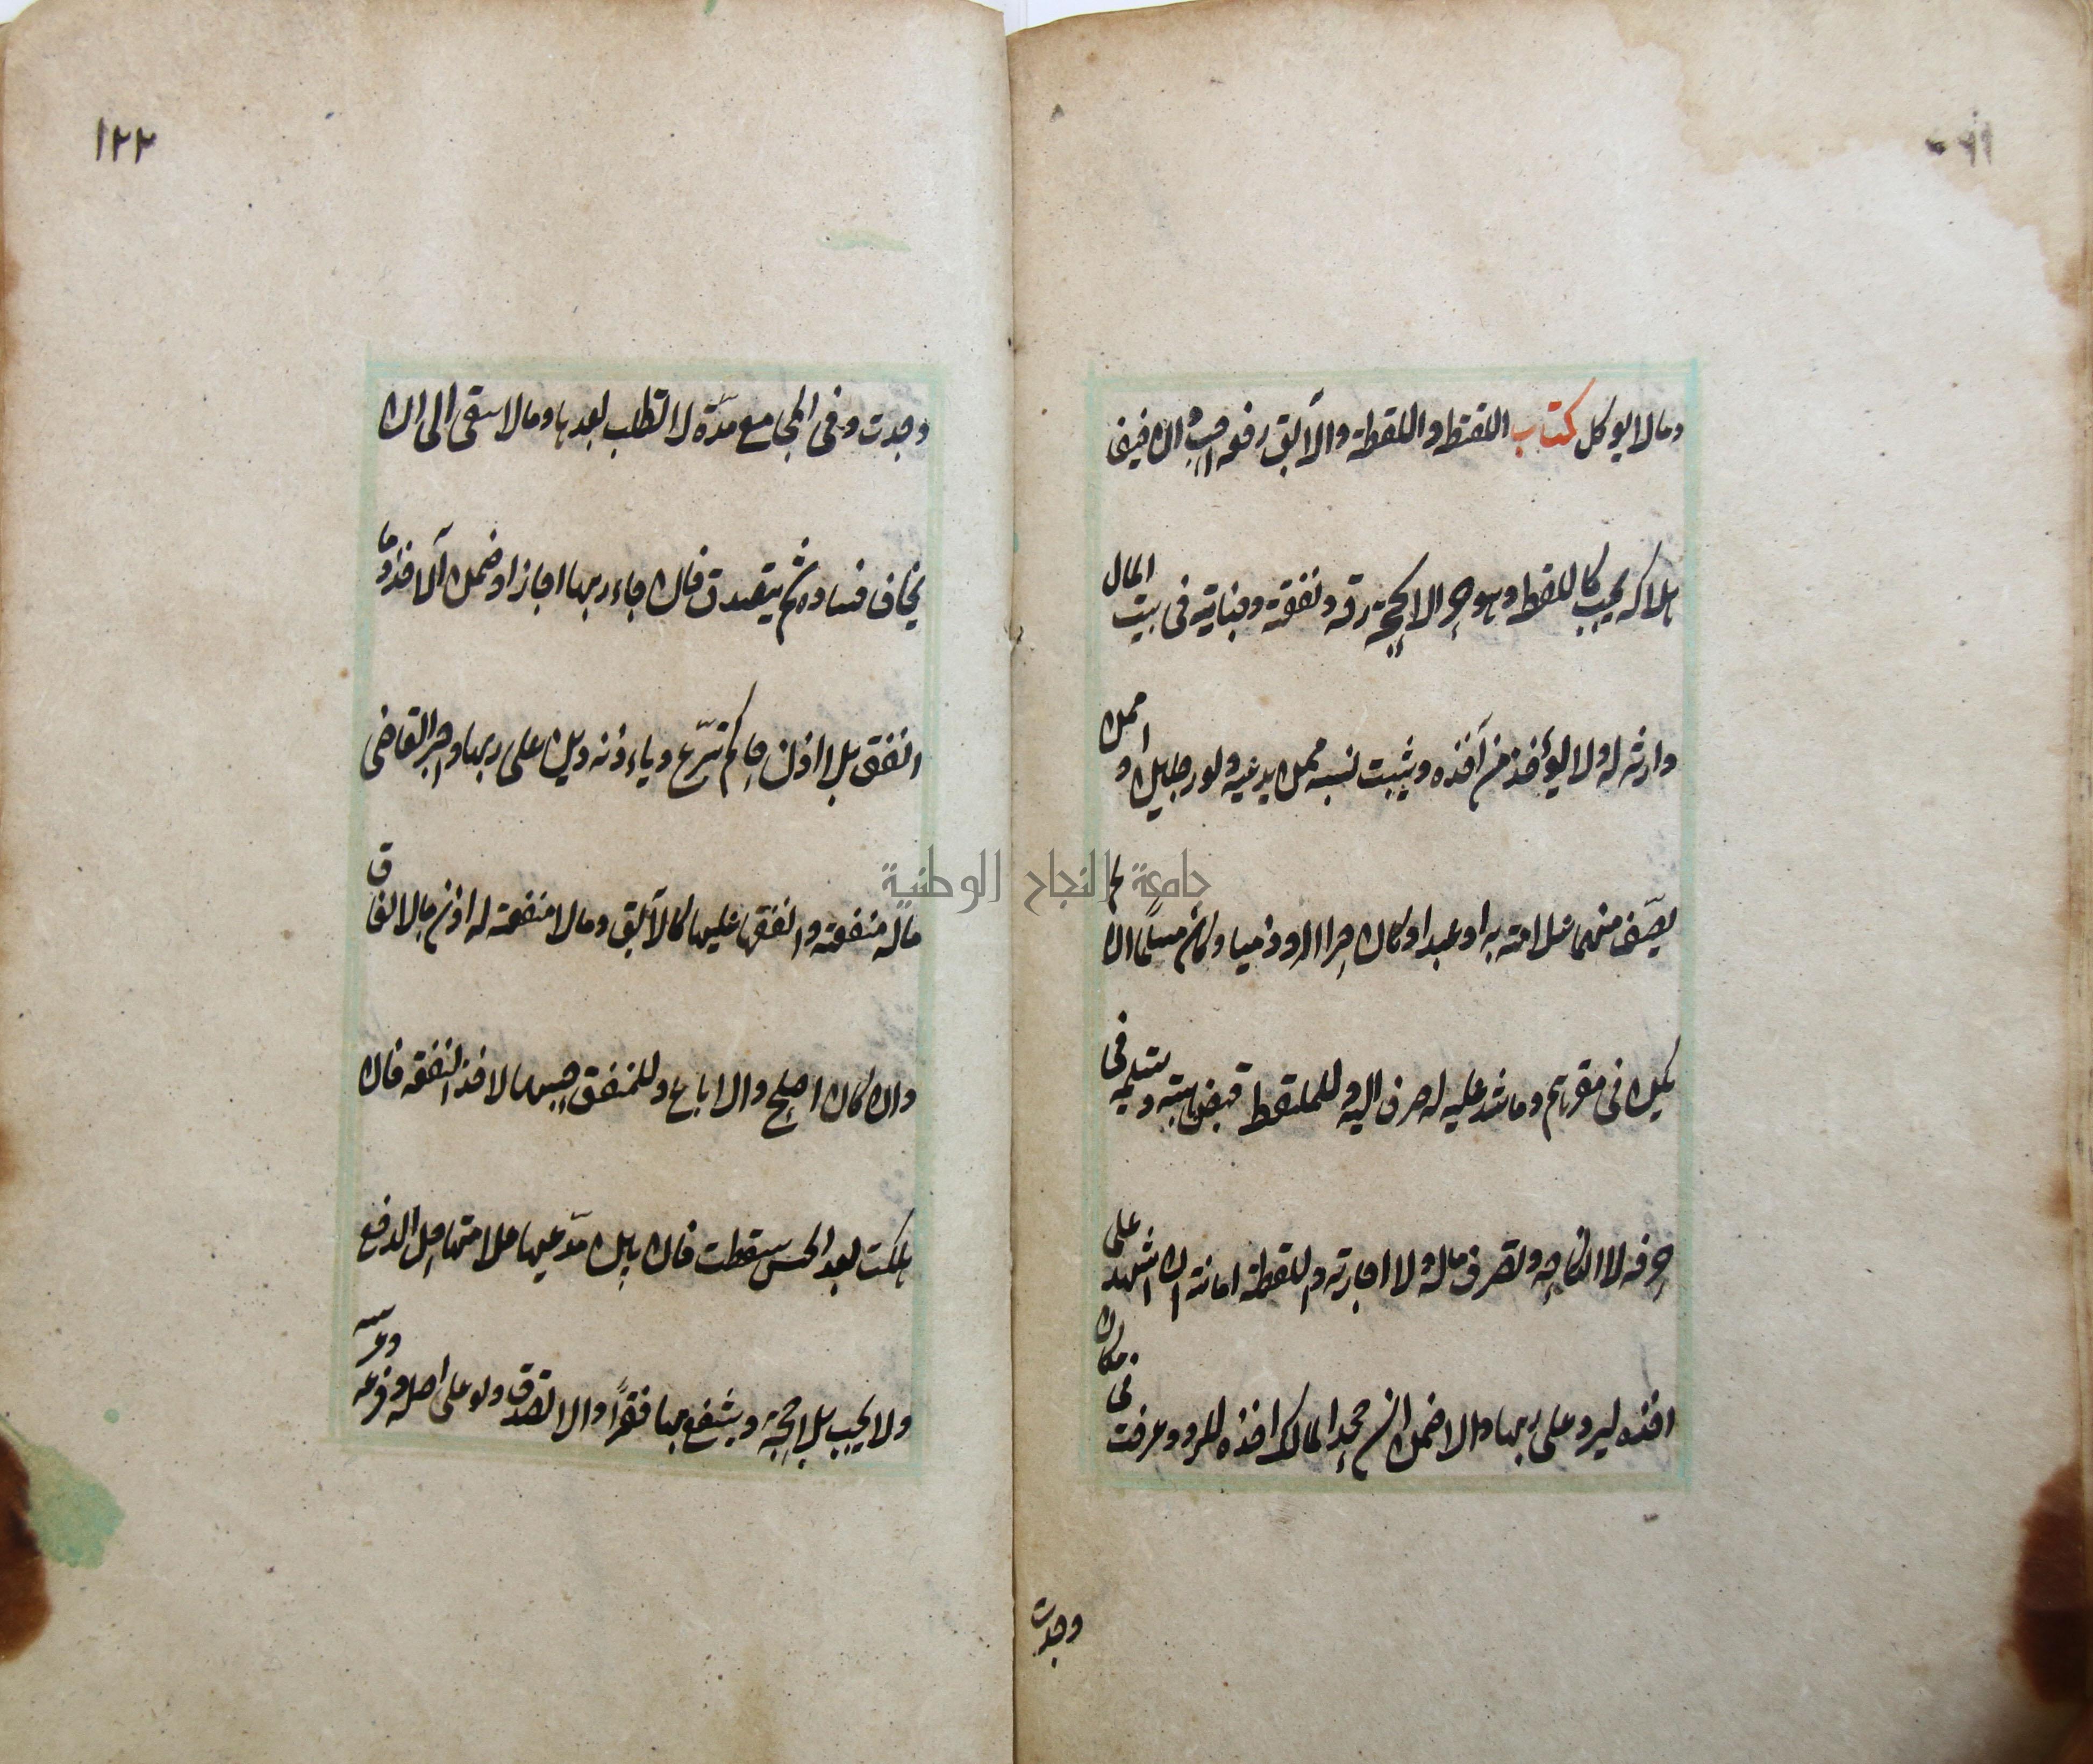 وما لا يؤكل كتاب اللقيط واللقطة والآبق رفعه احب وان خيف
هلاكه يجب كاللقطة وهو حر الا بحجة رقه ونفقته وجنايته في بيت المال
وارثه له ولا يؤخذ من آخذه ويثبت نسبه ممن يدعيه ولو رجلين او ممن
يصف منهما علامته به او عبدا وكان حرا او ذميا وكان مسلما ان لم
يكن في مقرهم وما شد عليه له صرف اليه وللملتقط قبض هبته وتسليمه في
حرفه لا انكاحه وتصرف ماله ولا اجارته واللقطة امانة ان اشهد على
اخذه ليرد على ربها والا ضمن ان جحد المالك اخذه للرد وعرفت في مكان
وجدت
١٢٢
وجدت وفي المجامع مدة لا تطلب بعدها وما لا يبقى الى ان
يخاف فساده ثم يتصدق فان جاء ربها اجاز او ضمن الآخذ وما
انفق بلا اذن حاكم تبرع وباذنه دين على ربها واجر القاضي
ما له منفعة وانفق عليها كالآبق وما لا منفعة له اذن بالانفاق
وان كان اصلح والا باع وللمنفق حبسها لاخذ النفقة فان
هلكت بعد الحبس سقطت فان بين مدعيها علامتها حل الدفع
ولا يجب بلا حجة وينتفع بها فقيرا والا تصدق ولو على اصله وفرعه وعرسه
جامعة النجاح الوطنية